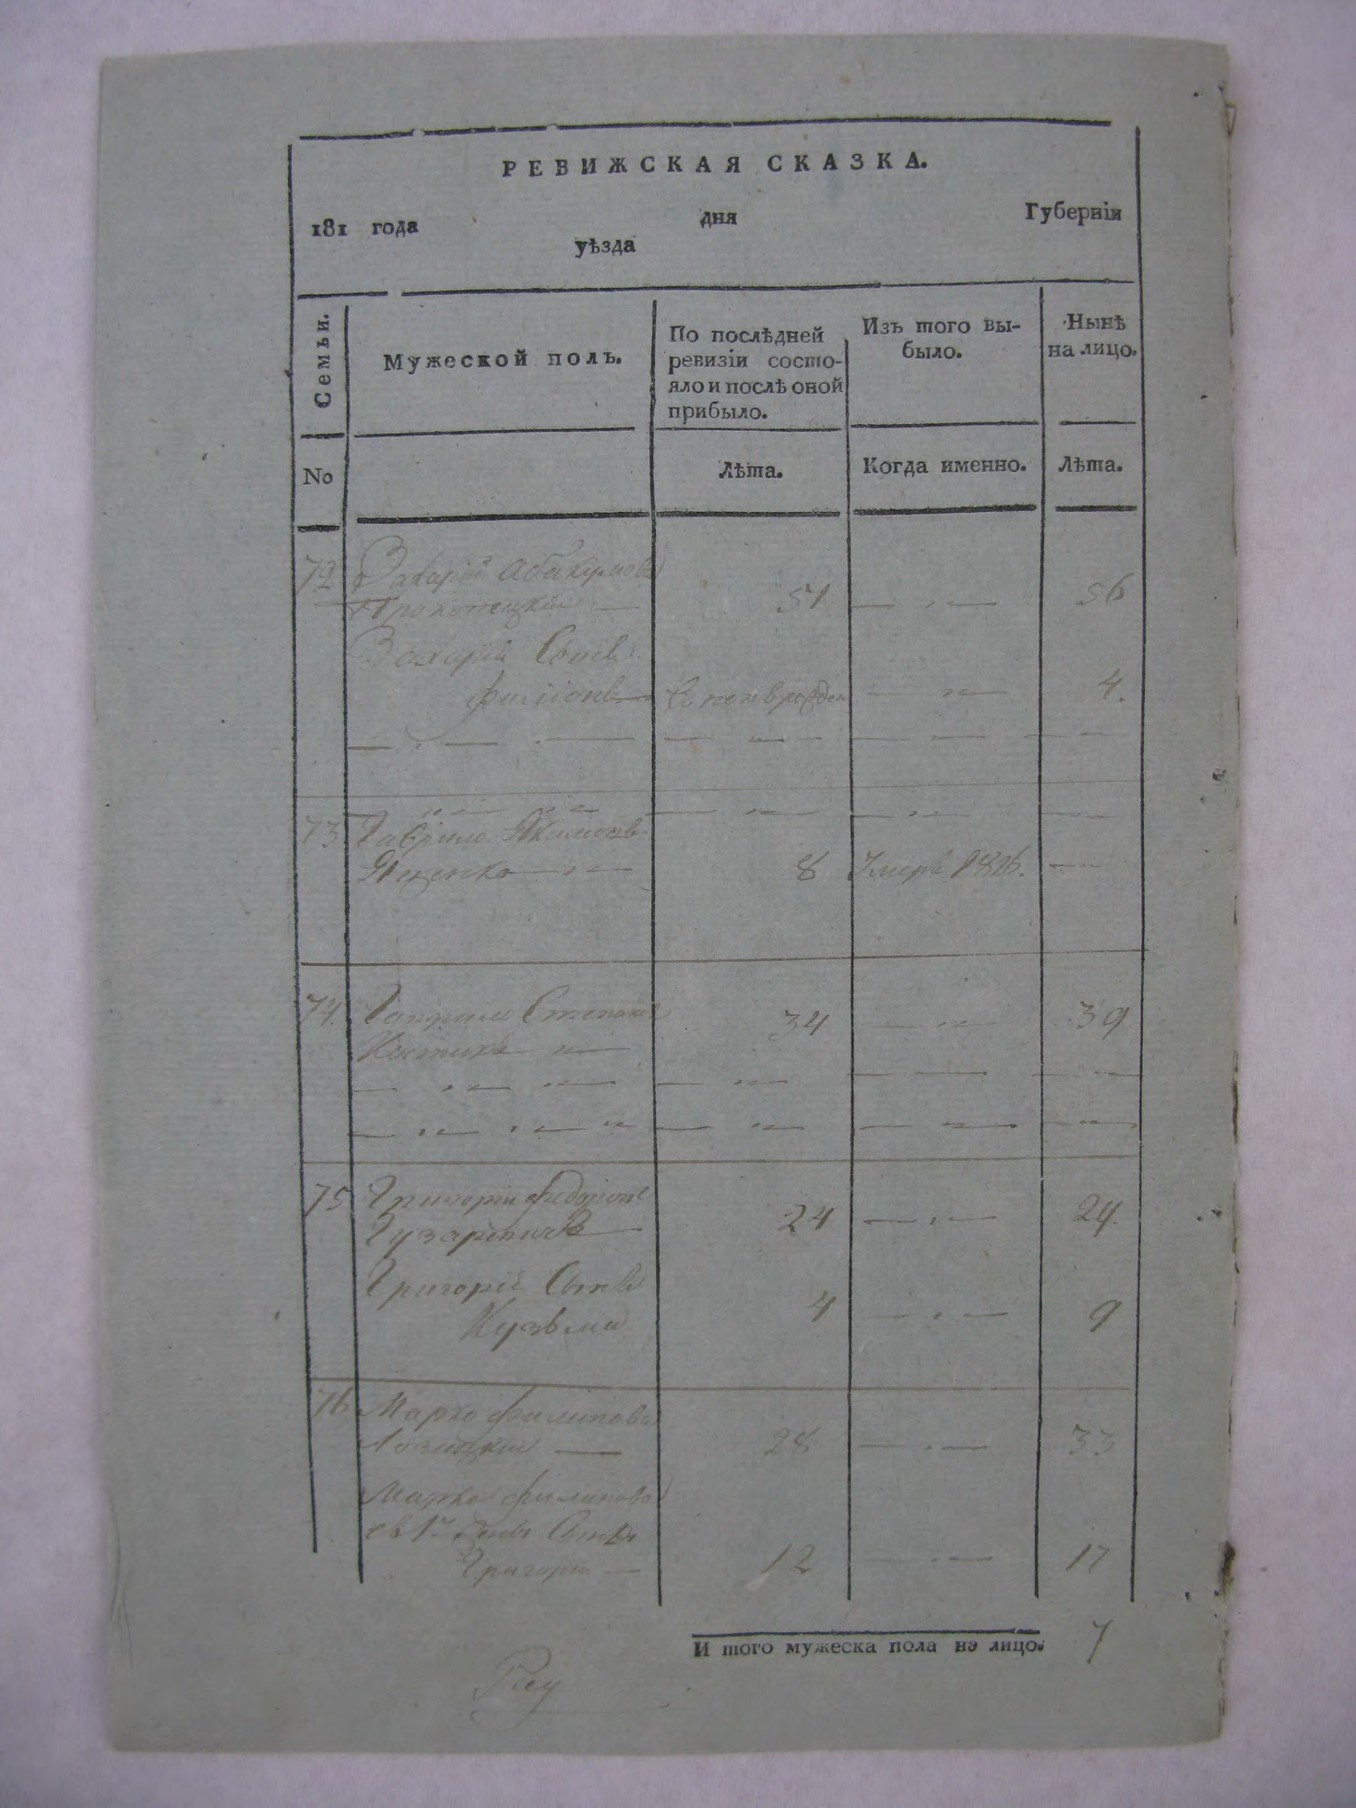 РЕВИЖСКАЯ СКАЗКА.
181 года дня Губернїи
уѣзда
Семьи.
Мужеской полъ.
По послѣдней
ревизїи состо-
яло и послѣ оной
прибыло.
Изъ того вы-
было.
Нынѣ
на лицо.
No
Лѣта.
Когда именно.
Лѣта.
72 Захарій Абакумовъ
51 56
Захарія Сынъ
Филіонъ 4.
73 Гаврило Якимовъ
Яценко 8 Умеръ 1816.
74. Степановъ
Костюкъ 34 39
75 Григорій Федоровъ
24 29.
Григорія Сынъ
Кузьма 4 9
76 Марко Филиповъ
28 33
Марка Филипова
Сынъ
Григорій 12 17
И того мужеска пола на лицо. 7